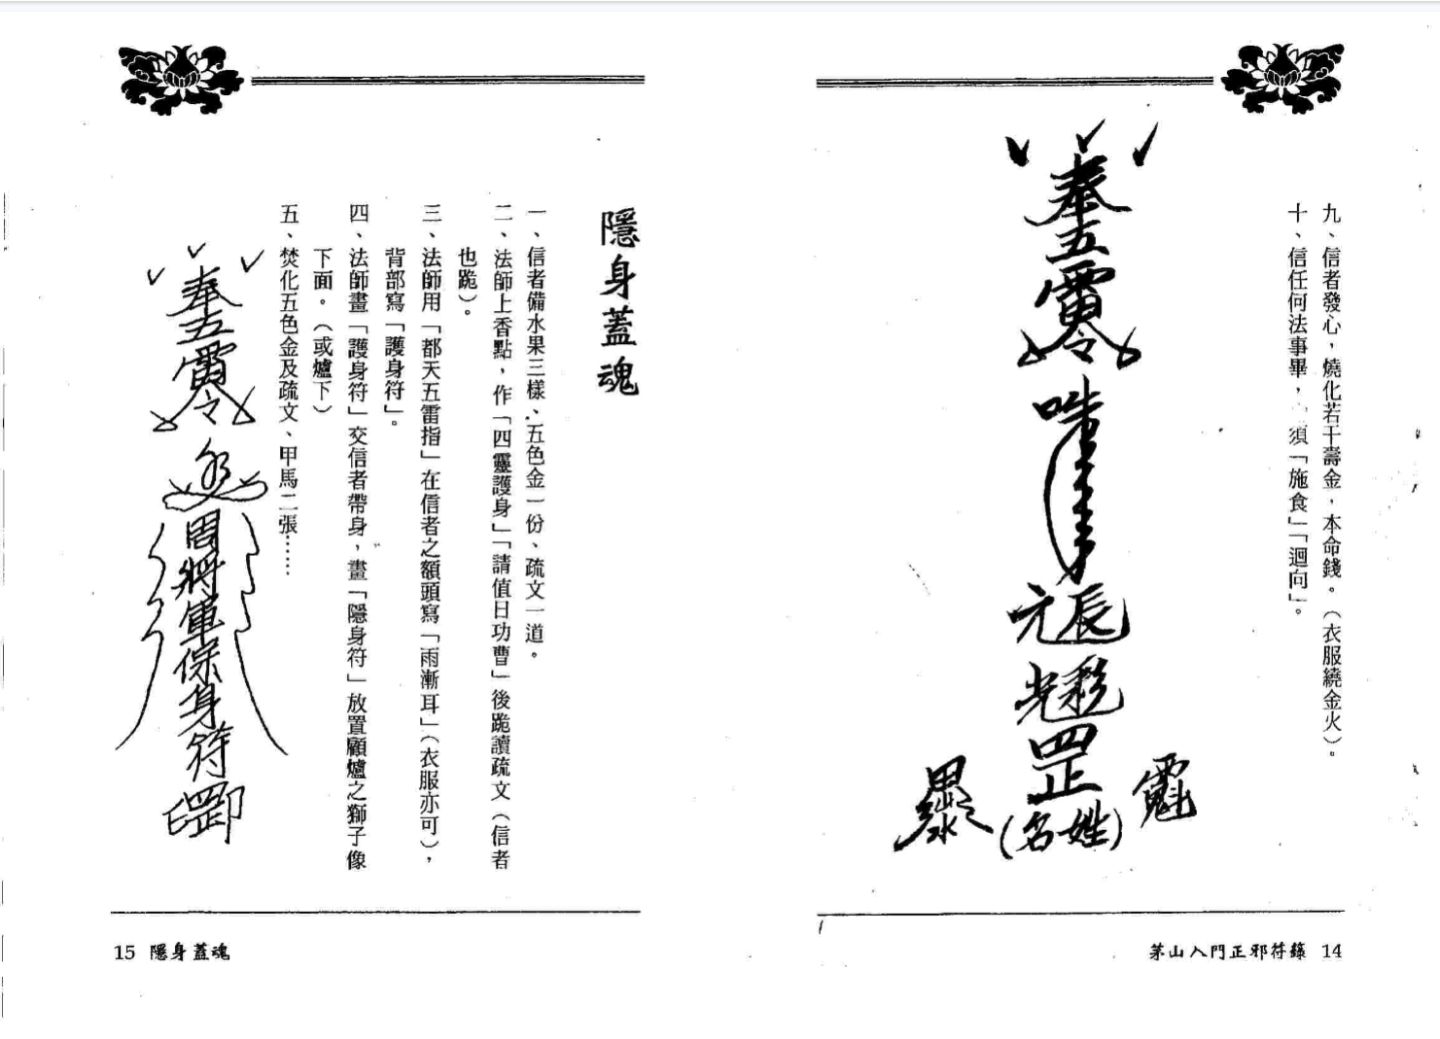 九、信者發心，燒化若干壽金，本命錢。（衣服繞金火）。
十、信任何法事畢，須「施食」「迴向」。
奉五雷令
元辰
光彩
罡
(名姓)
茅山入門正邪符籙 14
隱身蓋魂
一、信者備水果三樣、五色金一份、疏文一道。
二、法師上香點，作「四靈護身」「請值日功曹」後跪讀疏文（信者
也跪）。
三、法師用「都天五雷指」在信者之額頭寫「雨漸耳」（衣服亦可），
背部寫「護身符」。
四、法師畫「護身符」交信者帶身，畫「隱身符」放置顧爐之獅子像
下面。（或爐下）
五、焚化五色金及疏文、甲馬二張……
奉五雷令
周將軍保身符
15 隱身蓋魂